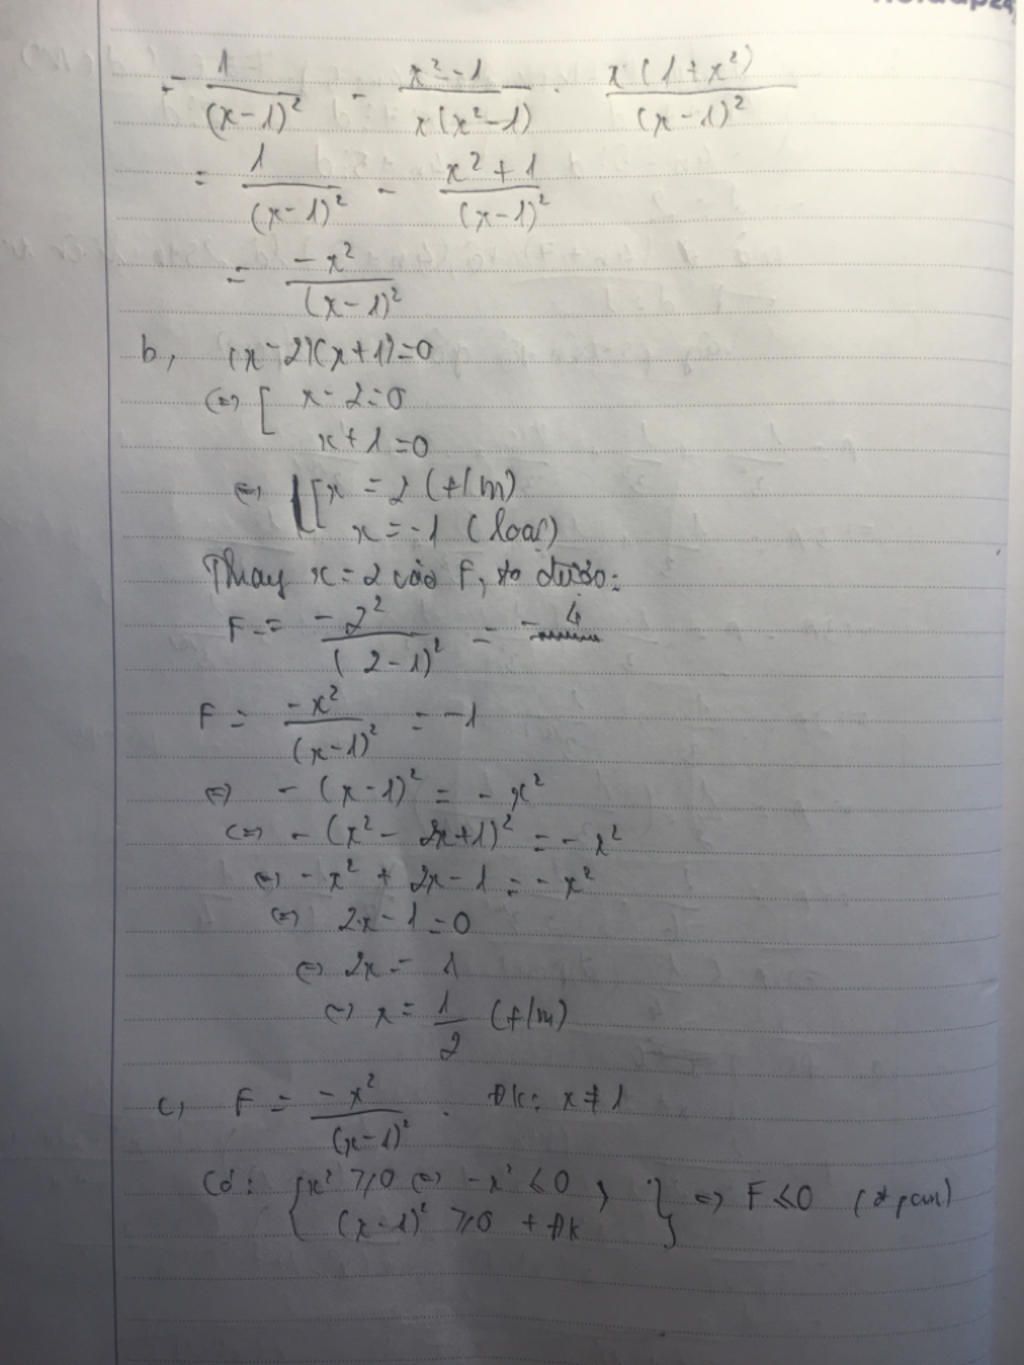 = 1/(x-1)² - x²-1/x(x²-1) . x(1+x²)/(x-1)²
= 1/(x-1)² - x²+1/(x-1)²
= -x²/(x-1)²
b, (x-2)(x+1)=0
<=> [ x-2=0
x+1=0
<=> [ x = 2 (t/m)
x = -1 (loại)
Thay x=2 vào F, ta được:
F = -2²/(2-1)² = -4
F = -x²/(x-1)² = -1
<=> -(x-1)² = -x²
<=> -(x²-2x+1)² = -x²
<=> -x²+2x-1 = -x²
<=> 2x-1=0
<=> 2x = 1
<=> x = 1/2 (t/m)
c, F = -x²/(x-1)² . Đk: x ≠ 1
Có: { x² ≥ 0 <=> -x² ≤ 0
(x-1)² ≥ 0 + Đk } => F ≤ 0 (đpcm)